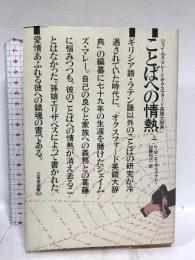 ジェイムズ・マレーとオクスフォード英語大辞典
ことばへの情熱
上
K・M・エリザベス・マレー
加藤知己=訳
ギリシャ語・ラテン語以外のことばの研究が冷
遇されていた時代に、『オクスフォード英語大辞
典』の編纂に七十九年の生涯を賭けたジェイム
ズ・マレー。自己の良心と家族への義務との葛藤
に悩みつつも、彼のことばへの情熱が消え去るこ
とはなかった。孫娘エリザベスによって書かれた、
愛情あふれる彼への鎮魂の書である。